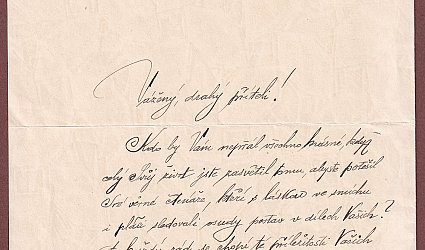 Vážený, drahý příteli!
Kdo by Vám nepřál všechno krásné, když
celý Svůj život jste zasvětil tomu, abyste potěšil
Své věrné čtenáře, kteří s láskou ve smíchu
i pláči sledovali osudy postav v dílech Vašich?
rád se chopí té příležitosti Vašich